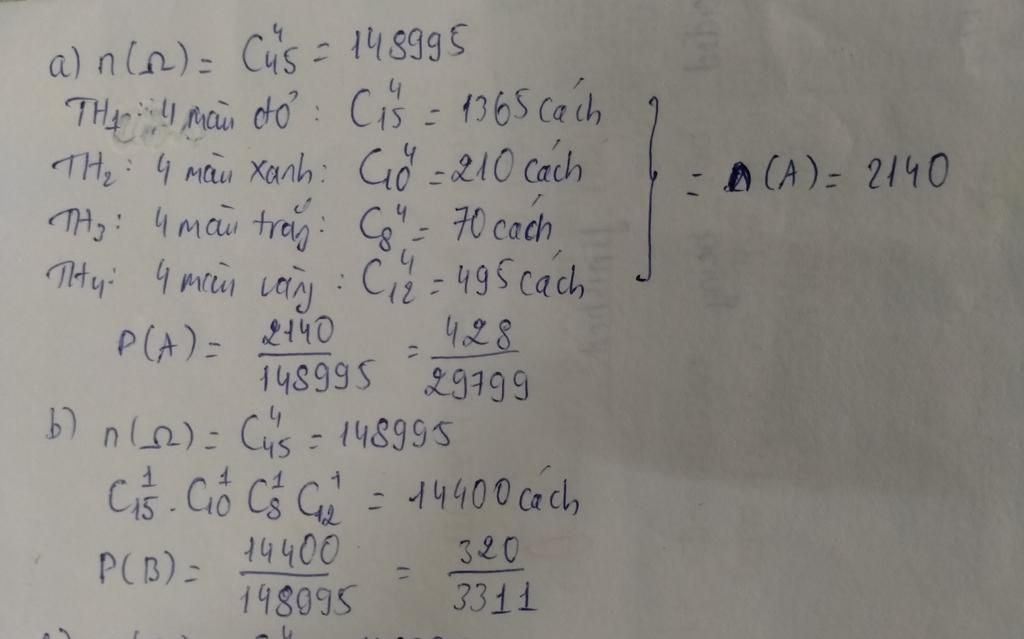 a) n(Ω) = C⁴₄₅ = 148995
TH₁: 4 màu đỏ : C⁴₁₅ = 1365 cách
TH₂: 4 màu xanh: C⁴₁₀ = 210 cách
= n(A) = 2140
TH₃: 4 màu trắg: C⁴₈ = 70 cách
TH₄: 4 màu vàng : C⁴₁₂ = 495 cách
P(A) = 2140/148995 = 428/29799
b) n(Ω) = C⁴₄₅ = 148995
C¹₁₅ . C¹₁₀ C¹₈ C¹₁₂ = 14400 cách
P(B) = 14400/148995 = 320/3311